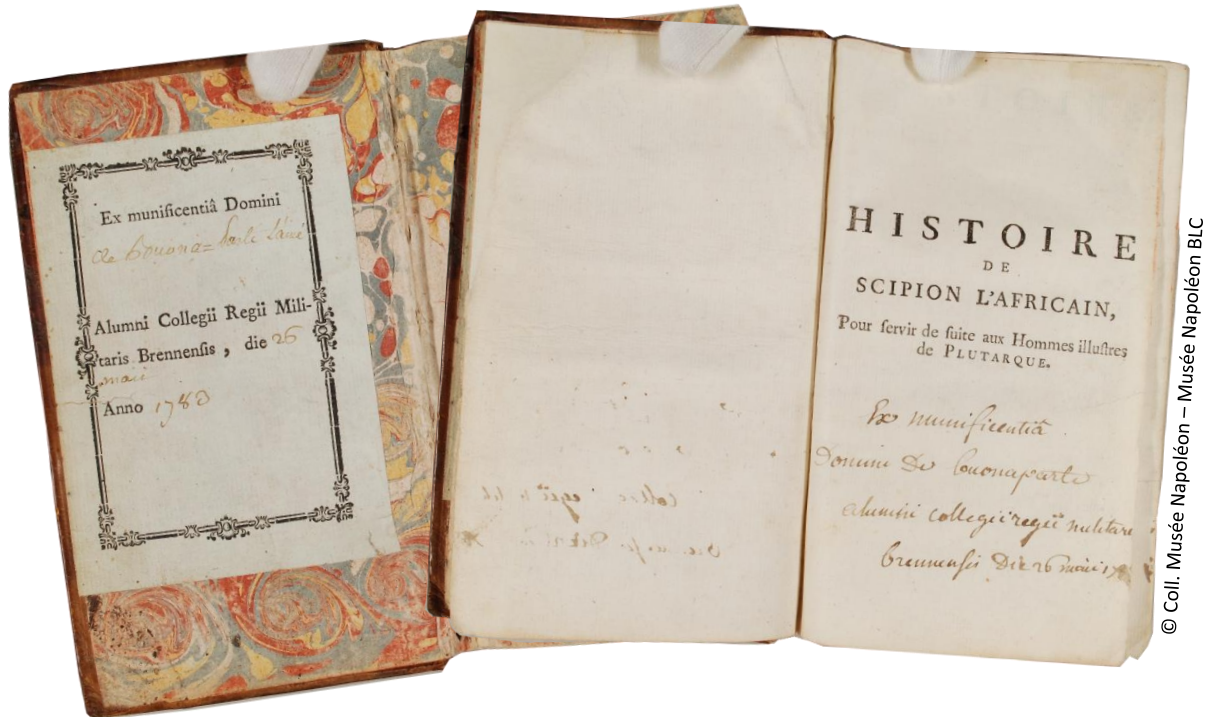 Ex munificentiâ Domini
de bouona=parte l'ainé
Alumni Collegii Regii Mili-
taris Brennensis, die 26
maii
Anno 1783
HISTOIRE
DE
SCIPION L'AFRICAIN,
Pour servir de suite aux Hommes illustres
de PLUTARQUE.
Ex munificentiâ
Domini De bouonaparte
alumni collegii regii militare
brennensis Die 26 maii
© Coll. Musée Napoléon – Musée Napoléon BLC